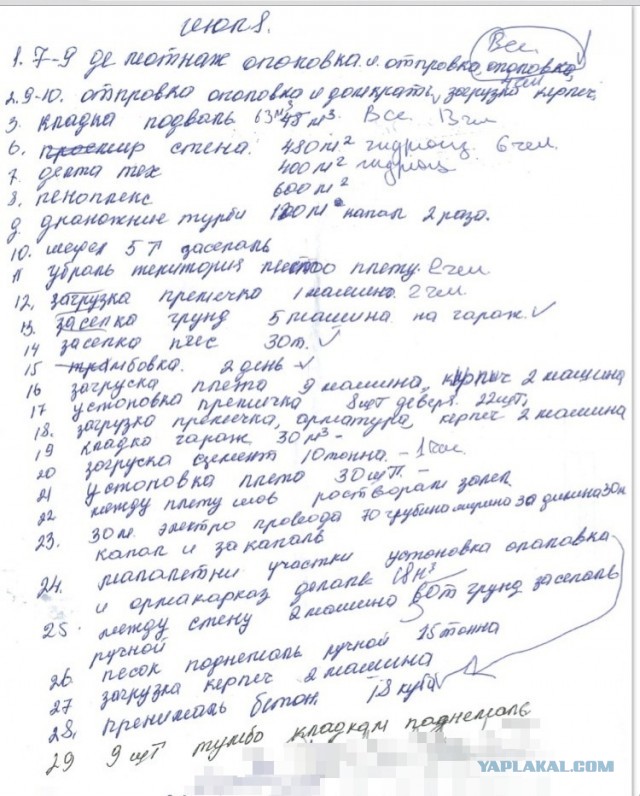 июль.
1. 7-9 де мотнаж опоповка и отпровка опоповка, Все
2. 9-10. отпровка опоповка и домкрать, загрузка керпеч,
3. кладка подваль 63м³ 45м³. Все 13 чел
6. стена. 480м² гидроиз. 6 чел.
7. делта тех 400м² гидроиз
8. пеноплекс 600м²
9. драножние турби 100м капал 2 разо.
10. 5 т засепаль
11 убраль територия плету. 2 чел.
12. загрузка премечко 1 машино. 2 чел.
13. засепка грунд 5 машина на гараж.
14 засепка пиес 30т.
15 трамбовка. 2 день
16 загруска плета 9 машина, керпеч 2 машина
17 устоповка премичка 8шт деверя. 22шт,
18. загрузко премечка, орматура, керпеч 2 машина
19 кладко гараж 30м³ -
20 загруска семент 10тонна. - 1 час
21 устоповка плето 30шт. -
22 между плету шов ростворам залел
23. 30м. электро провода 70 глубина ширина 30 длинна 30м
капал и закапаль
24. участки устоповка опаповка
и ормакарказ делаль 18м³
25. между стену 2 машино 60т грунд засепаль
ручной
26. песок поднемаль ручной 15 тонна
27 загрузка керпеч 2 машина
28, пренималь бетон 18 куба
29 9 шт тумбо кладкам поднемаль
YAPLAKAL.COM